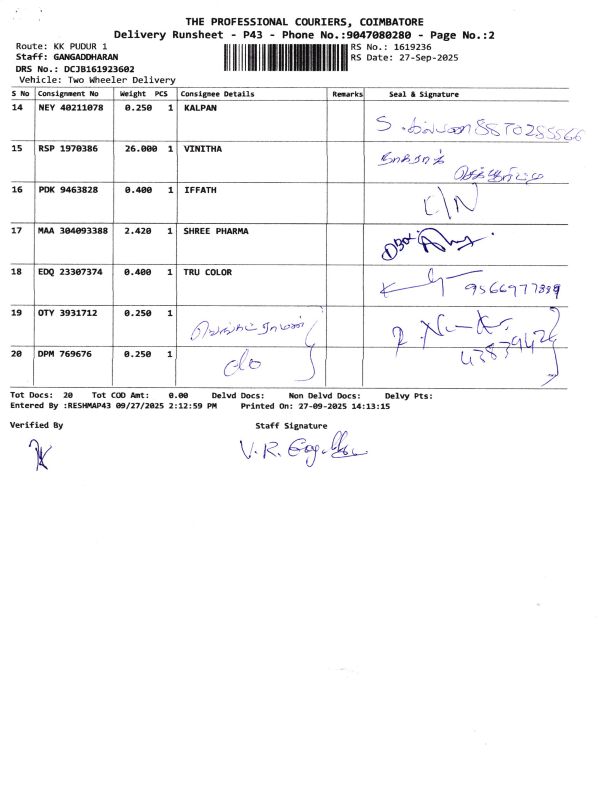 THE PROFESSIONAL COURIERS, COIMBATORE
Delivery Runsheet - P43 - Phone No.:9047080280 - Page No.:2
Route: KK PUDUR 1
RS No.: 1619236
Staff: GANGADDHARAN
RS Date: 27-Sep-2025
DRS No.: DCJB161923602
Vehicle: Two Wheeler Delivery
S No Consignment No Weight PCS Consignee Details Remarks Seal & Signature
14 NEY 40211078 0.250 1 KALPAN
15 RSP 1970386 26.000 1 VINITHA
16 PDK 9463828 0.400 1 IFFATH
17 MAA 304093388 2.420 1 SHREE PHARMA
18 EDQ 23307374 0.400 1 TRU COLOR
19 OTY 3931712 0.250 1 வெங்கட்ராமன்
20 DPM 769676 0.250 1
Tot Docs: 20 Tot COD Amt: 0.00 Delvd Docs: Non Delvd Docs: Delvy Pts:
Entered By :RESHMAP43 09/27/2025 2:12:59 PM Printed On: 27-09-2025 14:13:15
Verified By Staff Signature
V.R.